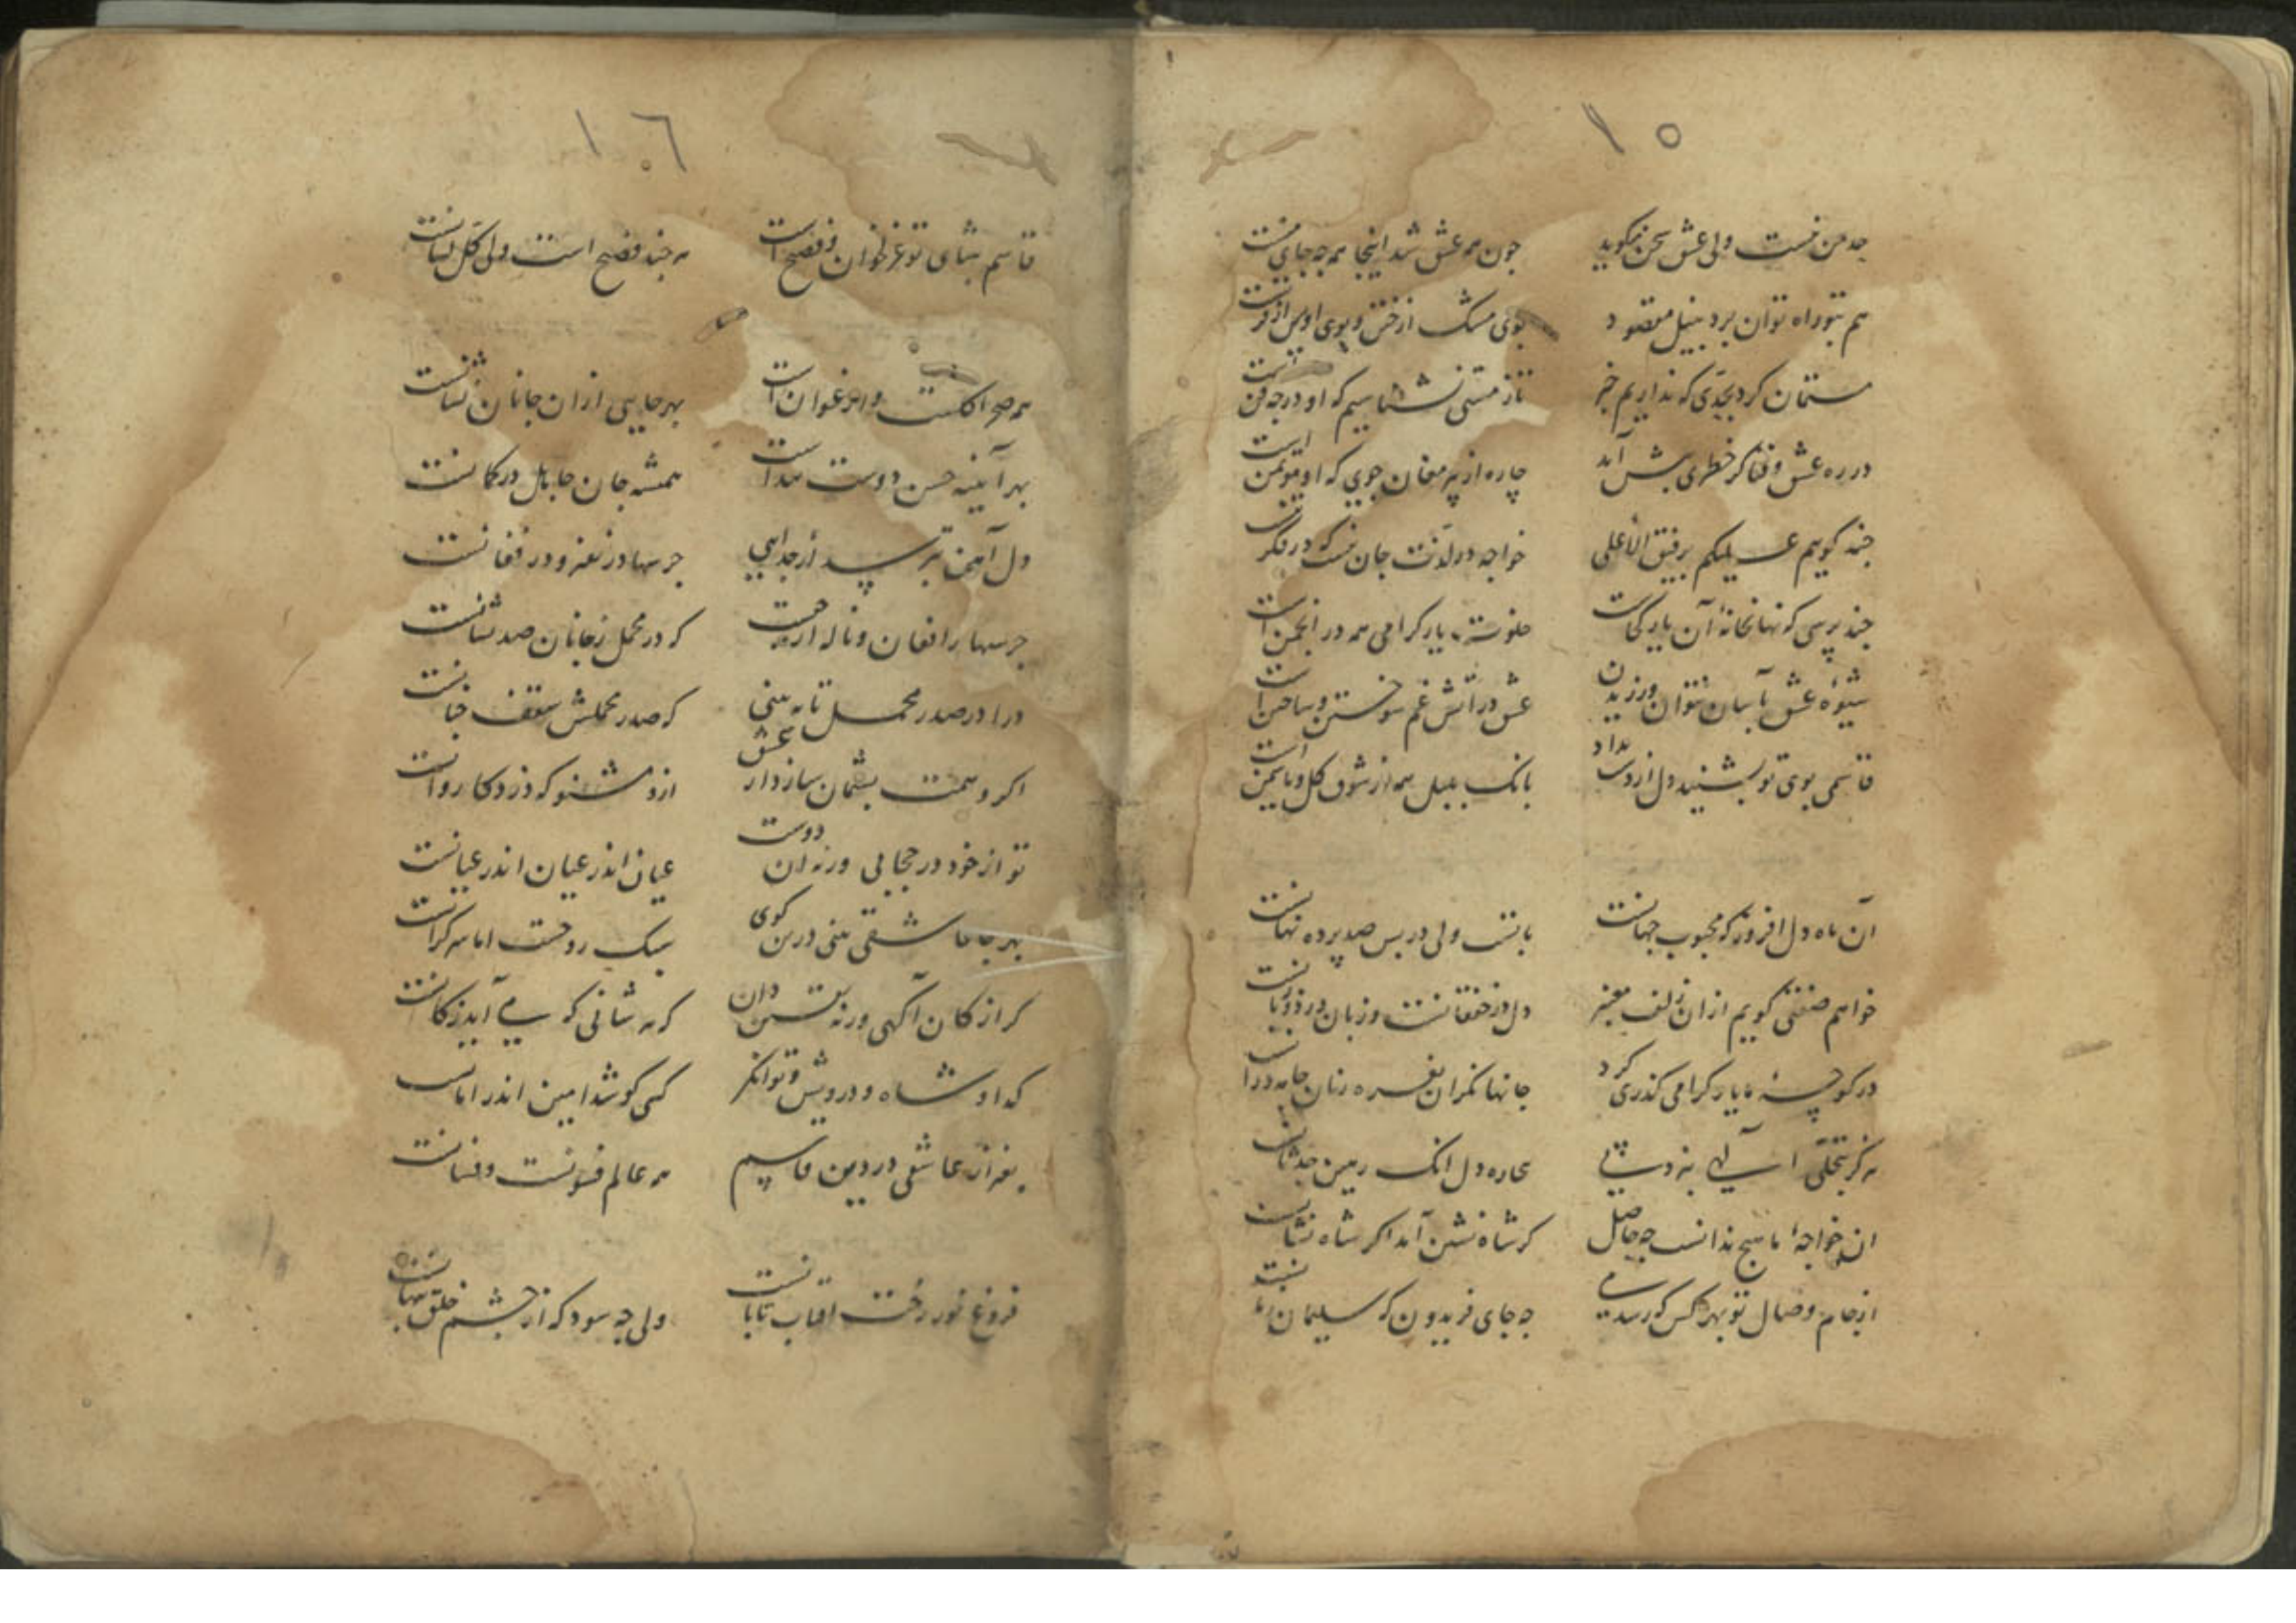 ۱۵
حد من نیست ولی عشق سخن میکوید چون همه عشق شد اینجا همه چه جای منست
هم بتو راه توان برد بنیل مقصود بوی مشک از ختن و بوی اویس از قرنست
مستمان کرد بحدی که نداریم خبر تا ز مستی نشناسیم که او در چه فن است
در ره عشق و فنا کر خطری پیش آید چاره از پیر مغان جوی که او موتمن است
چند کویم علیکم برفیق الاعلی خواجه در لذت جان نیست که در فکر تنست
چند پرسی که نهانخانه آن یار کجاست خلوت یار کرامی همه در انجمن است
شیوه عشق بآسان نتوان ورزیدن عشق در آتش غم سوختن و ساختن است
قاسمی بوی تو بشنید دل از دست بداد بانک بلبل همه از شوق کل و یاسمن است
آن ماه دل افروز که محبوب جهانست با ماست ولی در پس صد پرده نهانست
خواهم صفتی کویم از ان زلف معنبر دل در خفقانست و زبان در
در کوچه ما یار کرامی کذری کرد جانها نکران نعره زنان جامه درانست
هر کز بتجلی بیچاره دل
ان خواجه ما هیچ ندانست چه حاصل کر شاه نشین آمد اکر شاه نشانست
از جام وصال تو بهر کس که رسد می چه جای فریدون که سلیمان
۱٦
قاسم بثنای تو غزلخوان و فصیح است هر چند فصیح است ولی کل لسانست
همه صحرا کلست و ارغوان است بهر جایی ازان جانان نشانست
بهر آیینه حسن دوست پیداست همیشه جان جاهل در کمانست
دل آهن بترسید از جدایی جرسها در نعره و در فغانست
جرسها را فغان و ناله از چیست که در محمل ز جانان صد نشانست
درا در صدر محمل تا ببینی که صدر محملش سقف جنانست
اکر وهمت پشیمان سازد از عشق ازو مشنو که دزد کاروانست
تو از خود در حجابی ور نه ان دوست عیان اندر عیان اندر عیانست
بهر جا عاشقی بینی درین کوی سبک روحست اما سر کرانست
کر از کان آکهی ور نه یقین دان که هر شانی که می آید ز کانست
کدا و شاه و درویش و توانکر کسی کو شد امین اندر امانست
بغیر از عاشقی در دین قاسم همه عالم فسونست و فسانست
فروغ نور رخت افتاب تابانست ولی چه سود که از چشم خلق پنهانست